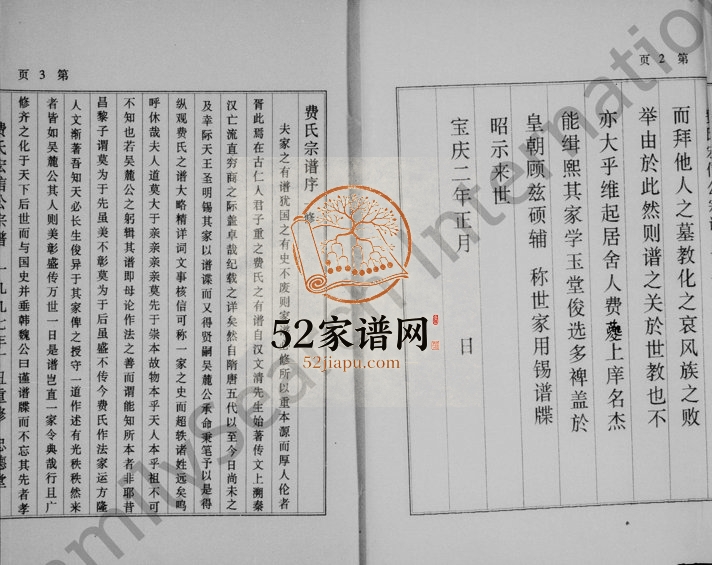 第 2 页
而拜他人之墓教化之哀风族之败
举由於此然则谱之关於世教也不
亦大乎维起居舍人费夔上庠名杰
能缉熙其家学玉堂俊选多裨盖於
皇朝顾兹硕辅 称世家用锡谱牒
昭示来世
宝庆二年正月 日
第 3 页
费氏宗谱序
夫家之有谱犹国之有史不废则家 修所以重本源而厚人伦者
胥此焉在古仁人君子重之费氏之有谱自汉文清先生始著传文上溯秦
汉亡流直穷商之际盖卓哉纪载之详矣然自隋唐五代以至今日尚未之
及幸际天王圣明锡其家以谱谍而又得贤嗣吴麓公承命秉笔予以是得
纵观费氏之谱大略精详词文事核信可称一家之史而超轶诸姓远矣呜
呼休哉夫人道莫大于亲亲亲亲莫先于崇本故物本乎天人本乎祖不可
不知也若吴麓公之躬辑其谱即母论作法之善而谓能知所本者非耶昔
昌黎子谓莫为于先虽美不彰莫为于后虽盛不传今费氏作法家运方隆
人文渐著吾知天必长生俊异于其家俾之授守一道作述有光秩秩然来
者皆如吴麓公其人则美彰盛传万世一日是谱岂直一家令典哉行且广
修齐之化于天下后世而与国史并垂韩魏公曰谨谱牒而不忘其先者孝
费氏宏信公宗谱 一九九七年 丑重修 忠德堂
52家谱网
52jiapu.com
FamilySearch International